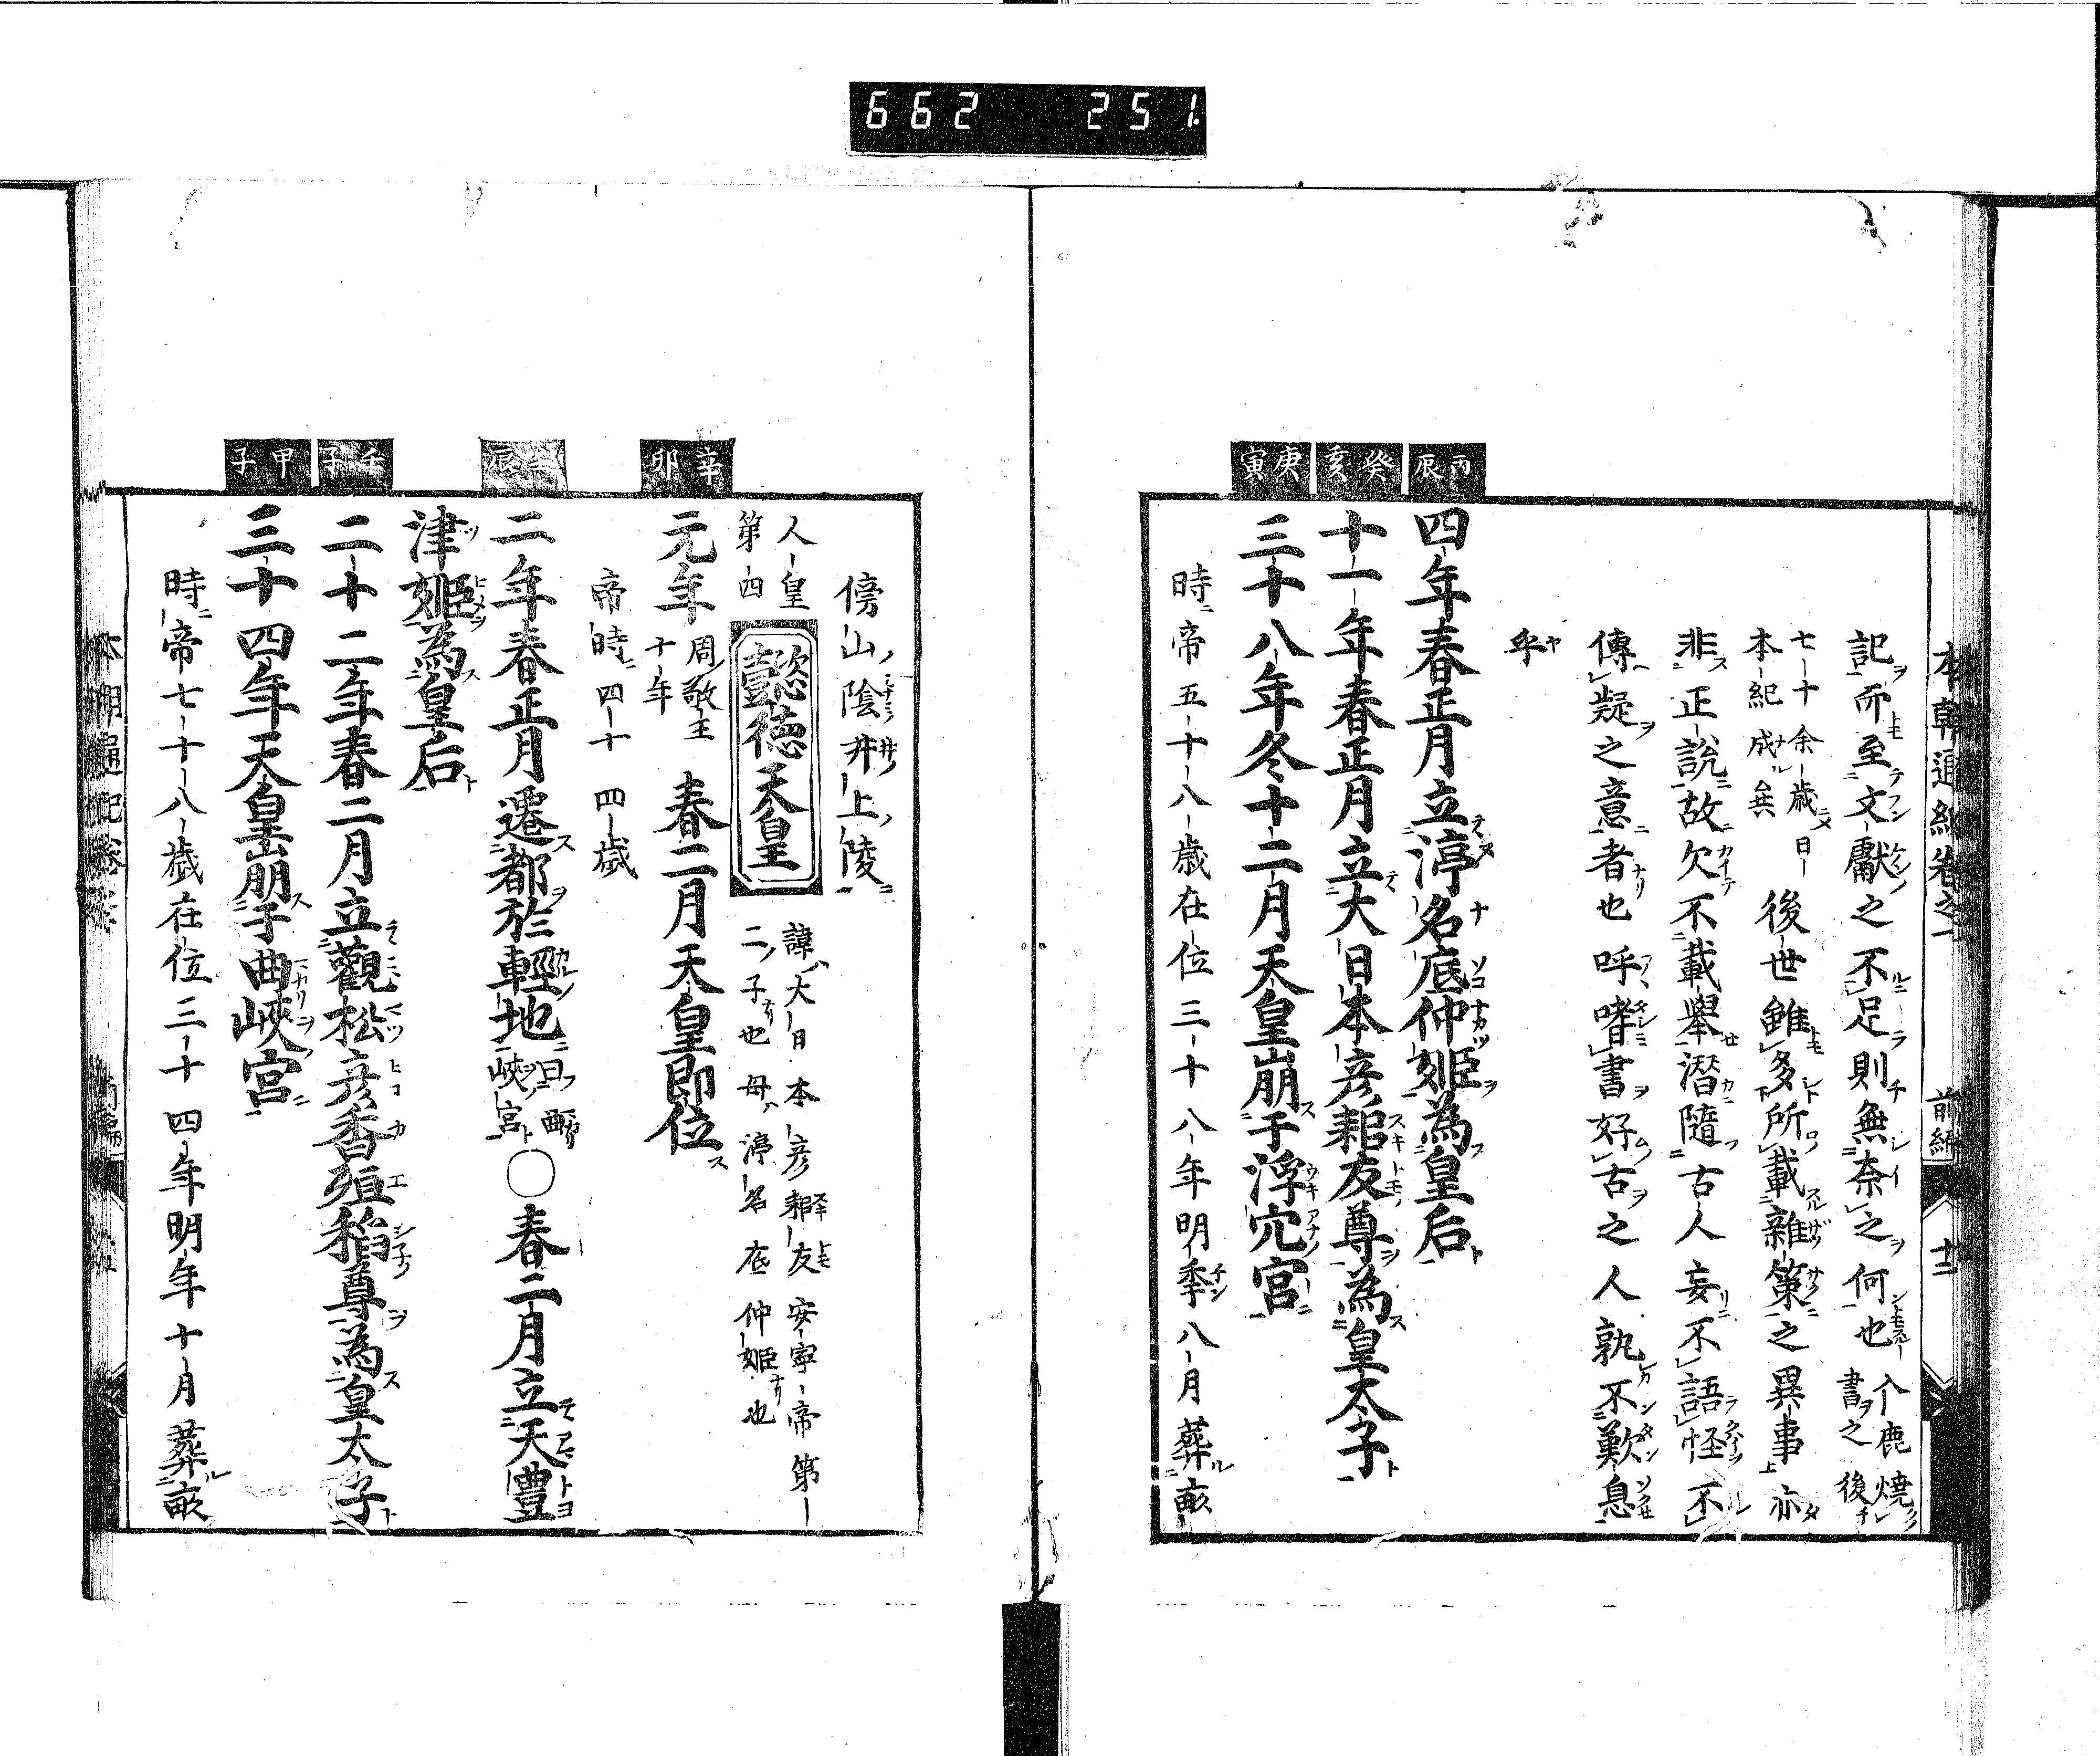 662 251.
本朝通紀卷之一 前編 十二
記而至文獻之不足則無奈之何也 入鹿燒書之後
七十余歲曰本紀成矣 後世雖多所載雜策之異事亦
非正說故欠不載舉潜隨古人妄不語怪不
傳疑之意者也呼嗜書好古之人孰不歎息
乎
丙辰
四年春正月立渟名底仲姬為皇后
癸亥
十一年春正月立大日本彥耜友尊為皇太子
庚寅
三十八年冬十二月天皇崩于浮穴宮
時帝五十八歲在位三十八年明季八月葬畝
傍山陰井上陵
人皇第四
懿德天皇
諱大日本彥耜友安寧帝第二子也母渟名底仲姬也
辛卯
元年 周敬王十年 春二月天皇即位
帝時四十四歲
壬辰
二年春正月遷都於輕地 曰曲峽宮 ○春二月立天豐
津姬為皇后
壬子
二十二年春二月立觀松彥香殖稻尊為皇太子
甲子
三十四年天皇崩于曲峽宮
時帝七十八歲在位三十四年明年十月葬畝